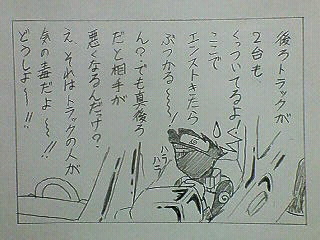 後ろトラックが
2台も、
くっついてるよ!
ここで
エンストきたら
ぶつかる〜〜!
ん?でも真後ろ
だと相手が
悪くなるんだけ?
え、それはトラックの人が
気の毒だよ〜!!
どうしよ〜〜!!
ハラ
ハラ